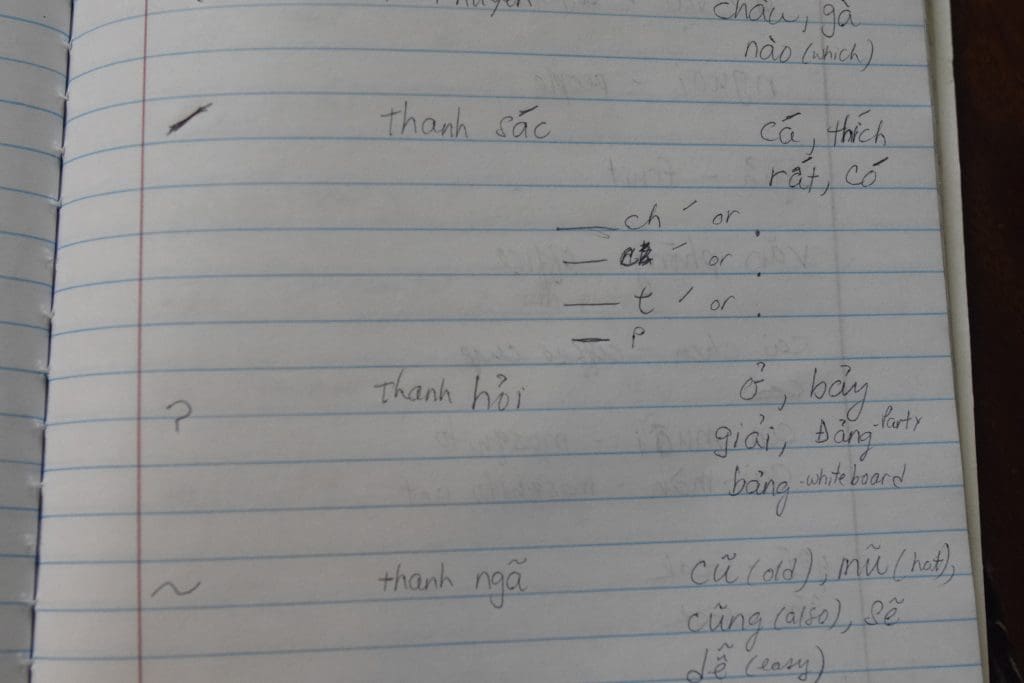 chàu, gà
nào (which)
thanh sắc cá, thích
rất, có
ch ´ or .
´ or .
t ´ or .
p
? thanh hỏi ở, bảy
giải, Đảng -Party
bảng -whiteboard
~ thanh ngã cũ (old), mũ (hat),
cũng (also), sẽ
dễ (easy)